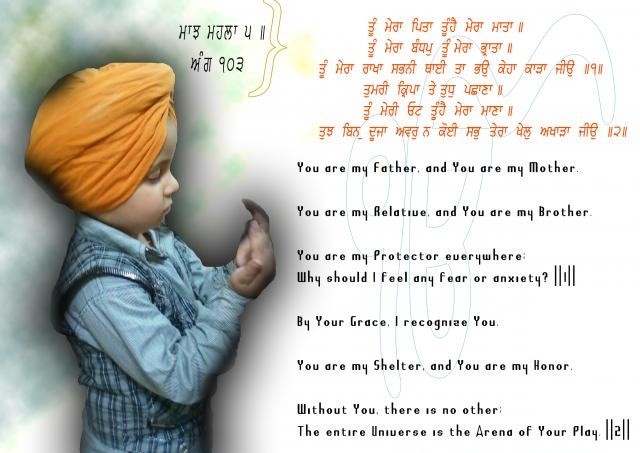 ਮਾਝ ਮਹਲਾ ੫ ॥
ਅੰਗ ੧੦੩
ਤੂੰ ਮੇਰਾ ਪਿਤਾ ਤੂੰਹੈ ਮੇਰਾ ਮਾਤਾ ॥
ਤੂੰ ਮੇਰਾ ਬੰਧਪੁ ਤੂੰ ਮੇਰਾ ਭ੍ਰਾਤਾ ॥
ਤੂੰ ਮੇਰਾ ਰਾਖਾ ਸਭਨੀ ਥਾਈ ਤਾ ਭਉ ਕੇਹਾ ਕਾੜਾ ਜੀਉ ॥੧॥
ਤੁਮਰੀ ਕ੍ਰਿਪਾ ਤੇ ਤੁਧੁ ਪਛਾਣਾ ॥
ਤੂੰ ਮੇਰੀ ਓਟ ਤੂੰਹੈ ਮੇਰਾ ਮਾਣਾ ॥
ਤੁਝ ਬਿਨੁ ਦੂਜਾ ਅਵਰੁ ਨ ਕੋਈ ਸਭੁ ਤੇਰਾ ਖੇਲੁ ਅਖਾੜਾ ਜੀਉ ॥੨॥
You are my Father, and You are my Mother.
You are my Relative, and You are my Brother.
You are my Protector everywhere;
Why should I feel any fear or anxiety? ||1||
By Your Grace, I recognize You.
You are my Shelter, and You are my Honor.
Without You, there is no other;
The entire Universe is the Arena of Your Play. ||2||